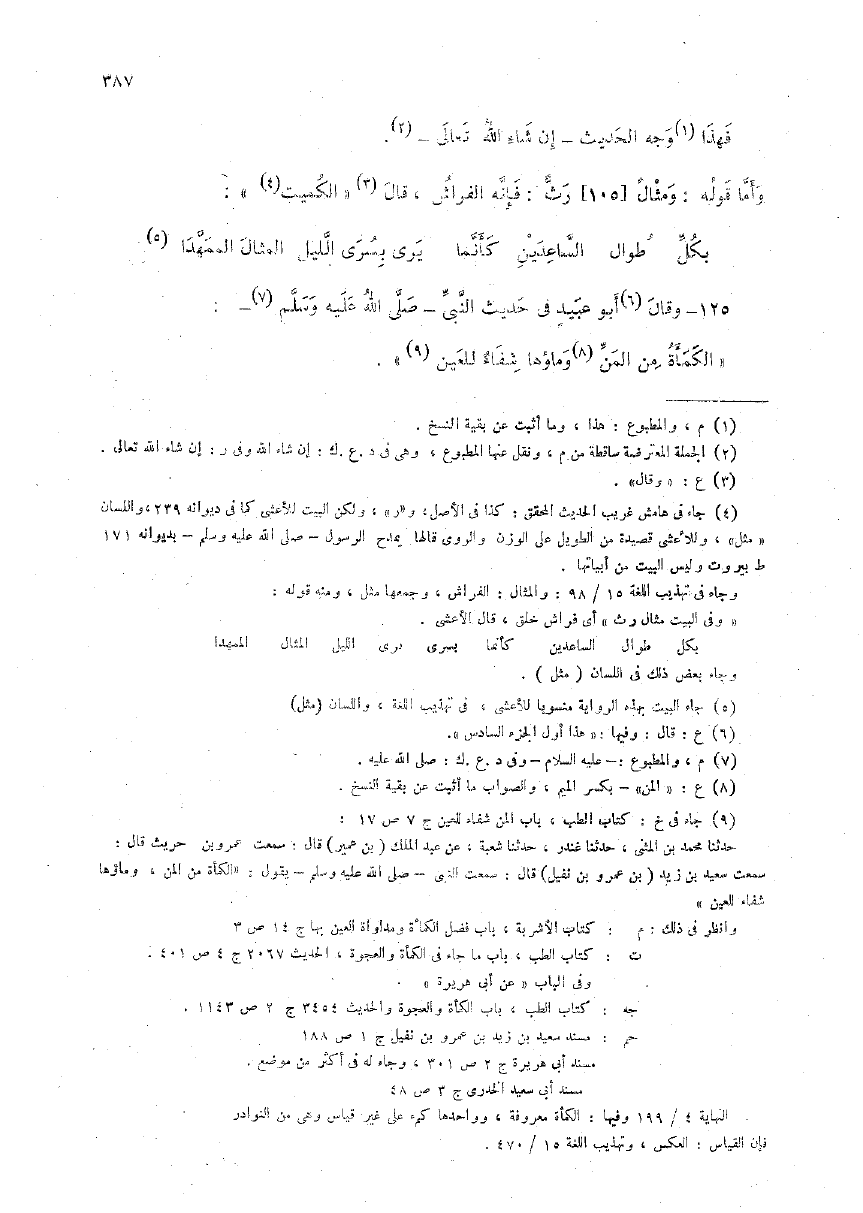 ٣٨٧
فَهذَا (١) وَجه الحَديث – إِن شَاءِ اللهُ تَعالَى – (٢).
وَأَمَّا قَولُه : وَمثْالٌ [١٠٥] رَثٌّ : فَإِنَّه الفراشُ ، قالَ (٣) « الكُميت (٤) » :
بكُلِّ طُوال السَّاعدَيْنِ كَأَنَّما يَرى بِسُرَى الَّليل المثالَ الممَهَّدَا (٥)
١٢٥– وقالَ (٦) أَبو عبَيد فى حَديث النَّبىِّ – صَلَّى اللهُ عَلَيه وَسَلَّم (٧) – :
« الكَمَأَةُ مِن المَنِّ (٨) وَماؤها شِفَاءٌ للعَين (٩) » .
(١) م ، والمطبوع : هذا ، وما أثبت عن بقية النسخ .
(٢) الجملة المعترضة ساقطة من م ، ونقل عنها المطبوع ، وهى فى د . ع . ك : إن شاء الله وفى ر : إن شاء الله تعالى .
(٣) ع : « وقال» .
(٤) جاء فى هامش غريب الحديث المحقق : كذا فى الأصل، و«ر» ، ولكن البيت للأعشى كما فى ديوانه ٢٣٩،واللسان
« مثل» ، وللأعشى قصيدة من الطويل على الوزن والروى قالها يمدح الرسول – صلى الله عليه وسلم – بديوانه ١٧١
ط بيروت وليس البيت من أبياتها .
وجاء فى تهذيب اللغة ١٥ / ٩٨ : والمثال : الفراش ، وجمعها مثل ، ومنه قوله :
« وفى البيت مثال رث » أى فراش خلق ، قال الأعشى .
بكل طوال الساعدين كأنما يسرى درى الليل المثال الممهدا
وجاء بعض ذلك فى اللسان ( مثل ) .
(٥) جاء البيت بهذه الرواية منسوبا للأعشى ، فى تهذيب اللغة ، واللسان (مثل)
(٦) ع : قال : وفيها :« هذا أول الجزء السادس ».
(٧) م ، والمطبوع :– عليه السلام –وفى د . ع . ك : صلى الله عليه .
(٨) ع : « المن» – بكسر الميم ، والصواب ما أثبت عن بقية النسخ .
(٩) جاء فى خ : كتاب الطب ، باب المن شفاء للعين ج ٧ ص ١٧ :
حدثنا محمد بن المثنى ، حدثنا غندر ، حدثنا شعبة ، عن عبد الملك ( بن عمير ) قال : سمعت عمرو بن حريث قال :
سمعت سعيد بن زيد ( بن عمرو بن نفيل ) قال : سمعت النبى – صلى الله عليه وسلم – يقول : «الكأة من المن ، وماؤها
شفاء العين »
وانظر فى ذلك : م : كتاب الأشربة ، باب فضل الكمأة ومداواة العين بها ج ١٤ ص ٣
ت : كتاب الطب ، باب ما جاء فى الكمأة والعجوة ، الحديث ٢٠٦٧ ج ٤ ص ٤٠١ .
وفى الباب « عن أبى هريرة » .
جه : كتاب الطب ، باب الكأة والعجوة والحديث ٣٤٥٤ ج ٢ ص ١١٤٣ .
حم : مسند سعيد بن زيد بن عمرو بن نفيل ج ١ ص ١٨٨
مسند أبى هريرة ج ٢ ص ٣٠١ ، وجاء له فى أكثر من موضع .
مسند أبى سعيد الخدرى ج ٣ ص ٤٨
النهاية ٤ / ١٩٩ وفيها : الكأة معروفة ، وواحدها كمء على غير قياس وهى من النوادر
فإن القياس : العكس ، وتهذيب اللغة ١٥ / ٤٧٠ .